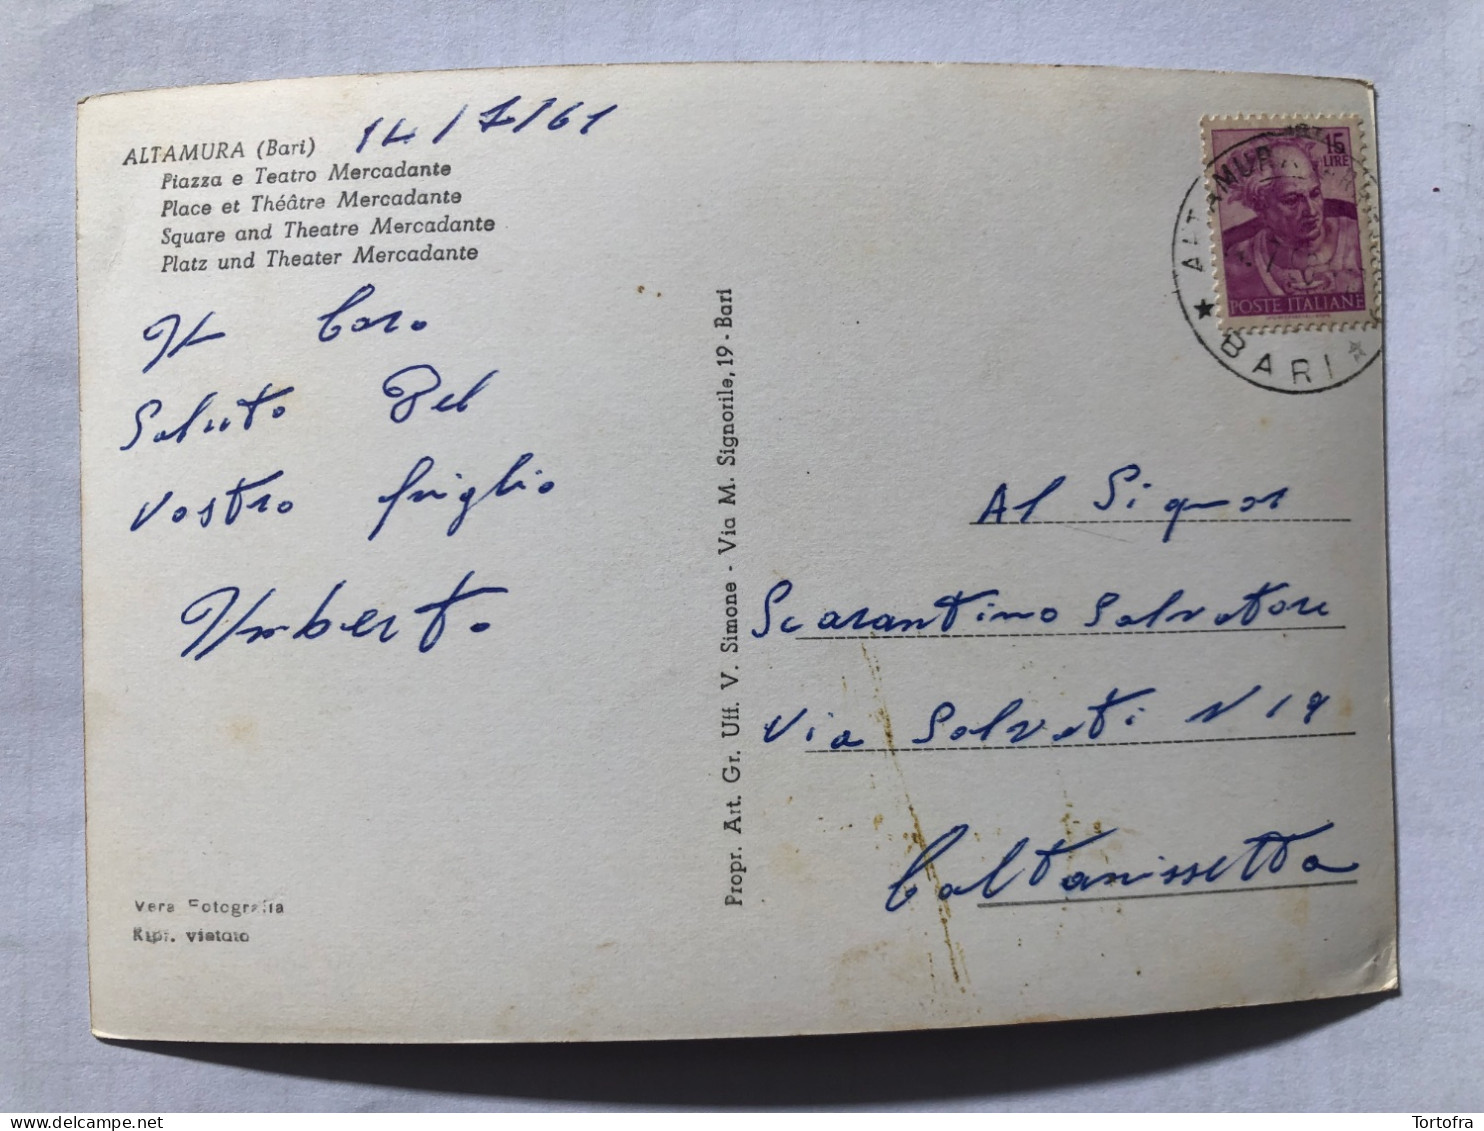 14/7/61
ALTAMURA (Bari)
Piazza e Teatro Mercadante
Place et Théâtre Mercadante
Square and Theatre Mercadante
Platz und Theater Mercadante
Il Caro
Saluto Del
Vostro figlio
Umberto
Vera Fotografia
Ripr. vietato
Propr. Art. Gr. Uff. V. Simone - Via M. Signorile, 19 - Bari
15
LIRE
POSTE ITALIANE
ALTAMURA
BARI
Al Signor
Scarantino Salvatore
Via Salvati N 19
Caltanissetta
Tortofra